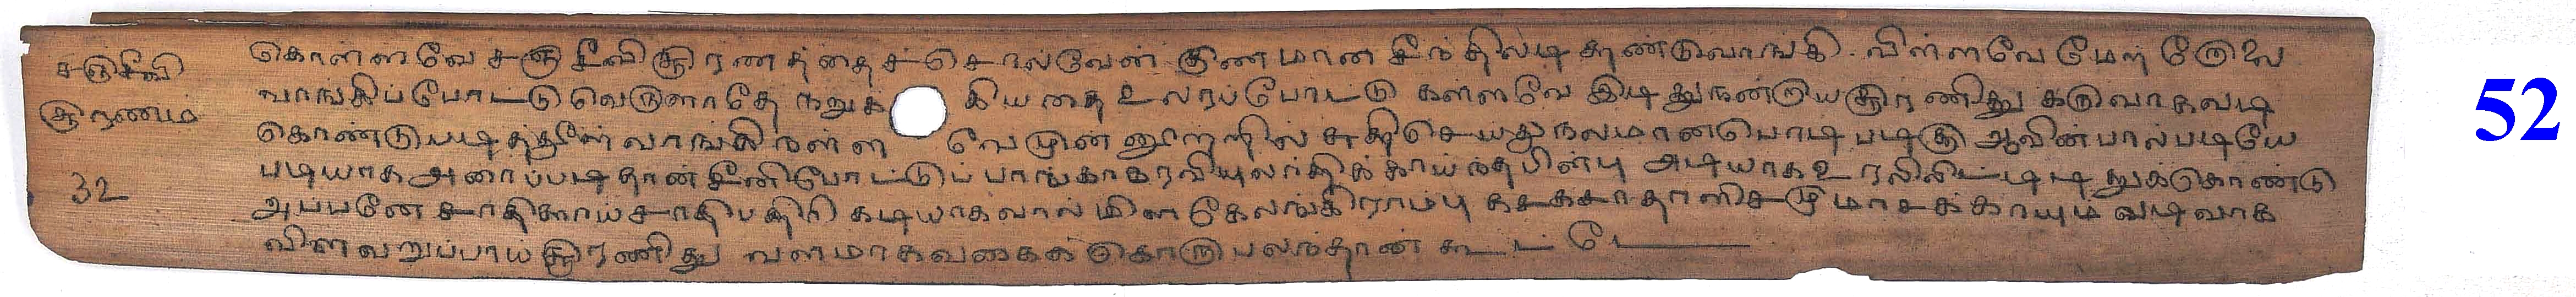 சஞ்சீவி
சூரணம்
32
கொள்ளவே சஞ்சீவிசூரணத்தைச் சொல்வேன் குணமான சீந்தில்டி தண்டுவாங்கி விள்ளவே மேற் றோலை
வாங்கிப்போட்டு வெருளாதே நறுக்கியதை உலரப்போட்டு கள்ளவே இடித்து நன்றாய் சூரணித்து கருவாகவடி
கொண்டு படித்தூள் வாங்கி நள்ளவே முன்னூற்றில் சுதிசெய்து நலமான பொடி படிக்கு ஆவின்பால் படியே
படியாக அரைப்படிதான் சீனிபோட்டு பாங்காக ரவியுலர்த்திக் காய்ந்தபின்பு அடியாக உரலிலிட்டிடித்துக்கொண்டு
அப்பனே சாதிக்காய் சாதிபத்திரி கடியாகவால்மிளகேலங்கிராம்பு கசகசா தாளிசமு மாசக்காயும் வடிவாக
விளவறுப்பாய் சூரணித்து வளமாகவகைக்கொரு பலந்தான் கூட்டே
52